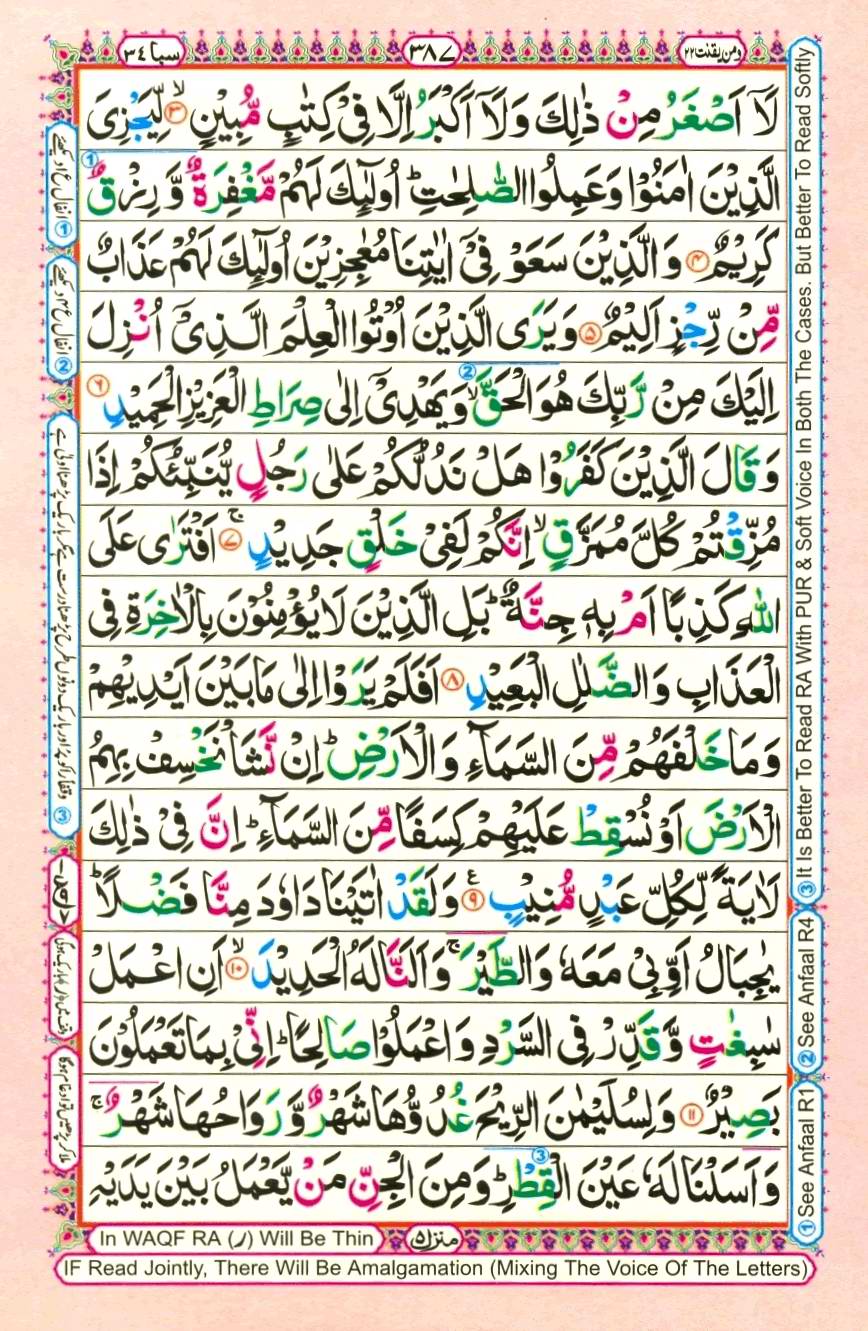 سبا ٣٤
٣٨٧
ومن يقنت ٢٢
لَاۤ اَصْغَرُ مِنْ ذٰلِكَ وَلَاۤ اَكْبَرُ اِلَّا فِیْ كِتٰبٍ مُّبِیْنٍ ۙ﴿۳﴾ لِّیَجْزِیَ
الَّذِیْنَ اٰمَنُوْا وَعَمِلُوا الصّٰلِحٰتِ ؕ اُولٰٓئِكَ لَهُمْ مَّغْفِرَةٌ وَّ رِزْقٌ
كَرِیْمٌ ﴿۴﴾ وَ الَّذِیْنَ سَعَوْ فِیْۤ اٰیٰتِنَا مُعٰجِزِیْنَ اُولٰٓئِكَ لَهُمْ عَذَابٌ
مِّنْ رِّجْزٍ اَلِیْمٌ ﴿۵﴾ وَ یَرَی الَّذِیْنَ اُوْتُوا الْعِلْمَ الَّذِیْۤ اُنْزِلَ
اِلَیْكَ مِنْ رَّبِّكَ هُوَ الْحَقَّ ۙ وَ یَهْدِیْۤ اِلٰی صِرَاطِ الْعَزِیْزِ الْحَمِیْدِ ﴿۶﴾
وَ قَالَ الَّذِیْنَ كَفَرُوْا هَلْ نَدُلُّكُمْ عَلٰی رَجُلٍ یُّنَبِّئُكُمْ اِذَا
مُزِّقْتُمْ كُلَّ مُمَزَّقٍ ۙ اِنَّكُمْ لَفِیْ خَلْقٍ جَدِیْدٍ ۚ﴿۷﴾ اَفْتَرٰی عَلَی
اللّٰهِ كَذِبًا اَمْ بِهٖ جِنَّةٌ ؕ بَلِ الَّذِیْنَ لَا یُؤْمِنُوْنَ بِالْاٰخِرَةِ فِی
الْعَذَابِ وَ الضَّلٰلِ الْبَعِیْدِ ﴿۸﴾ اَفَلَمْ یَرَوْا اِلٰی مَا بَیْنَ اَیْدِیْهِمْ
وَ مَا خَلْفَهُمْ مِّنَ السَّمَآءِ وَ الْاَرْضِ ؕ اِنْ نَّشَاْ نَخْسِفْ بِهِمُ
الْاَرْضَ اَوْ نُسْقِطْ عَلَیْهِمْ كِسَفًا مِّنَ السَّمَآءِ ؕ اِنَّ فِیْ ذٰلِكَ
لَاٰیَةً لِّكُلِّ عَبْدٍ مُّنِیْبٍ ﴿۹﴾ وَ لَقَدْ اٰتَیْنَا دَاوٗدَ مِنَّا فَضْلًا ؕ
یٰجِبَالُ اَوِّبِیْ مَعَهٗ وَ الطَّیْرَ ۚ وَ اَلَنَّا لَهُ الْحَدِیْدَ ۙ﴿۱۰﴾ اَنِ اعْمَلْ
سٰبِغٰتٍ وَّ قَدِّرْ فِی السَّرْدِ وَ اعْمَلُوْا صَالِحًا ؕ اِنِّیْ بِمَا تَعْمَلُوْنَ
بَصِیْرٌ ﴿۱۱﴾ وَ لِسُلَیْمٰنَ الرِّیْحَ غُدُوُّهَا شَهْرٌ وَّ رَوَاحُهَا شَهْرٌ ۚ
وَ اَسَلْنَا لَهٗ عَیْنَ الْقِطْرِ ؕ وَ مِنَ الْجِنِّ مَنْ یَّعْمَلُ بَیْنَ یَدَیْهِ
① See Anfaal R1
② See Anfaal R4
③ It Is Better To Read RA With PUR & Soft Voice In Both The Cases. But Better To Read Softly
In WAQF RA (ر) Will Be Thin
منزل ۵
IF Read Jointly, There Will Be Amalgamation (Mixing The Voice Of The Letters)